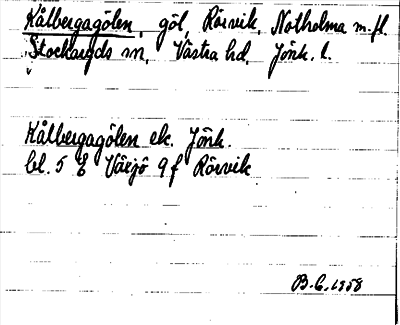 Kålbergagölen, göl, Rörvik, Notholma m.fl.
Stockaryds sn, Västra hd, Jönk. l.
Kålbergagölen ek. Jönk.
bl. 5 E Växjö 9 f Rörvik
B.G. 1958